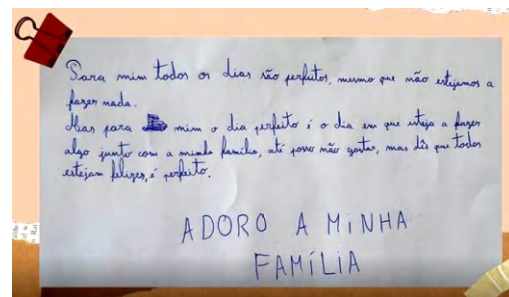 Para mim todos os dias são perfeitos, mesmo que não estejamos a
fazer nada.
Mas para mim o dia perfeito é o dia em que esteja a fazer
algo junto com a minha família, até posso não gostar, mas dês que todos
estejam felizes, é perfeito.
ADORO A MINHA
FAMÍLIA